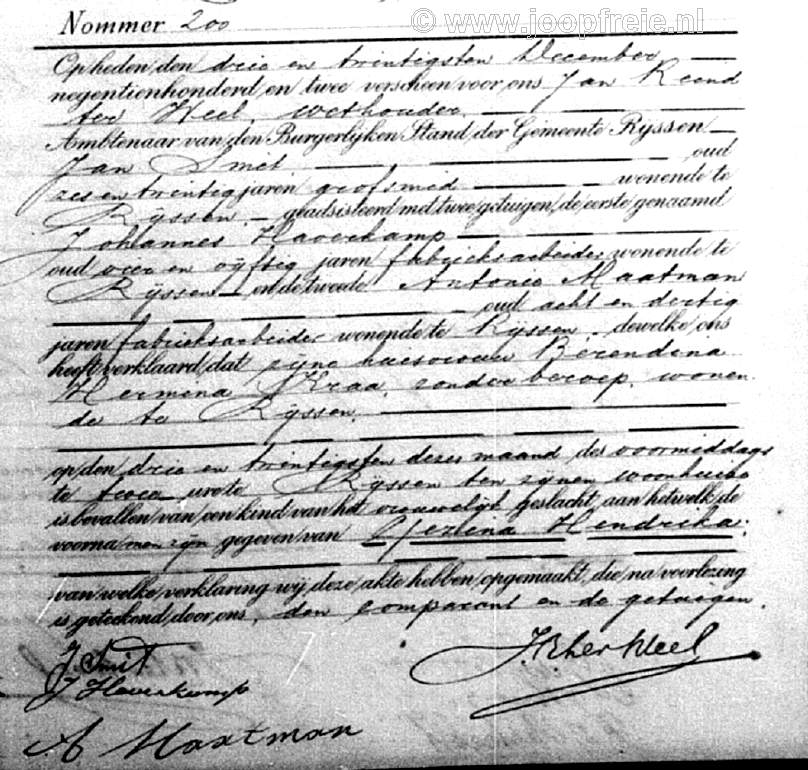 © www.joopfreie.nl
Nommer 200
Op heden, den drie en twintigsten December
negentienhonderd en twee verscheen voor ons Jan Reend
ter Weel, wethouder
Ambtenaar van den Burgerlijken Stand, der Gemeente Ryssen
Jan Smit oud
zes en twintig jaren grofsmid wonende te
Ryssen geadsisteerd met twee getuigen, de eerste genaamd
Johannes Haverkamp
oud vier en vyftig jaren fabrieksarbeider wonende te
Ryssen en de tweede Antonie Maatman
oud acht en dertig
jaren fabrieksarbeider wonende te Ryssen, dewelke ons
heeft verklaard, dat zyne huisvrouw Berendina
Hermina Kraa, zonder beroep, wonen
de te Ryssen,
op den drie en twintigsten dezer maand des voormiddags
te twee ure te Ryssen ten zynen woonhuize
is bevallen van een kind van het vrouwelijk geslacht aan hetwelk de
voornamen zijn gegeven van Gezina Hendrika.
van welke verklaring wij deze akte hebben opgemaakt, die na voorlezing
is geteekend, door ons, den comparant en de getuigen.
J. Smit
J Haverkamp
J.R. ter Weel
A Maatman